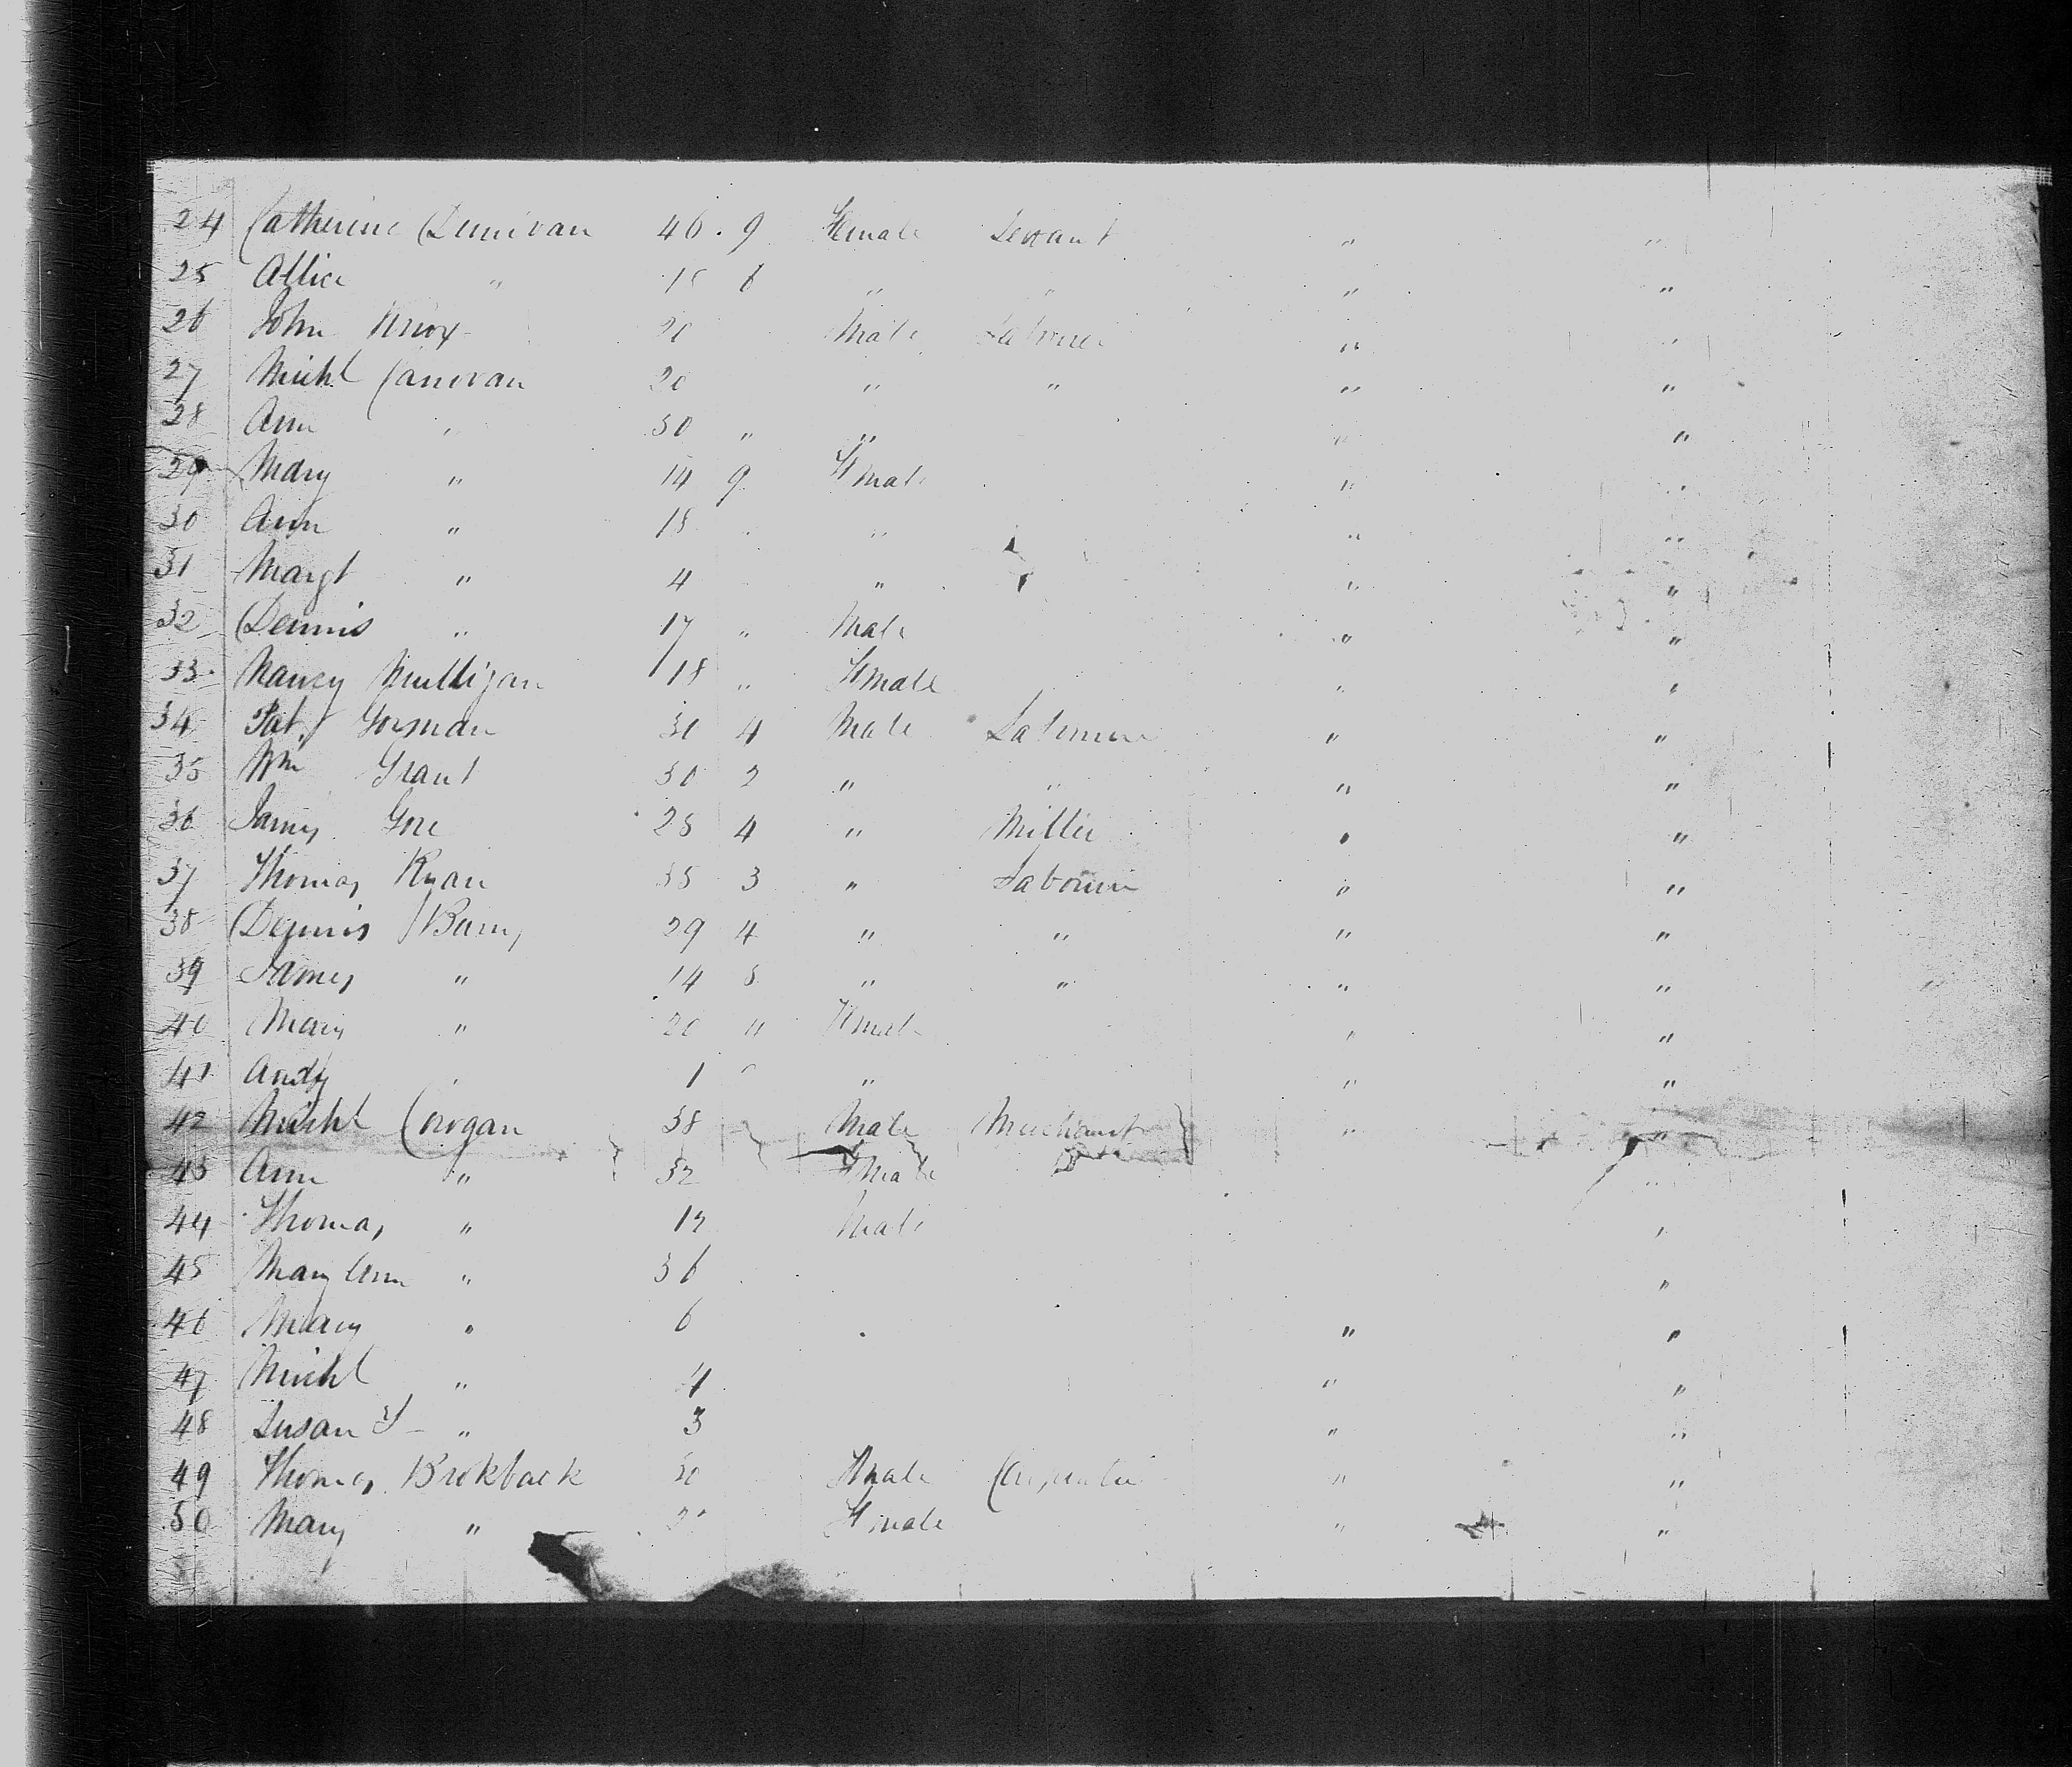 24 Catherine Dunivan 46 . 9 Female Servant " "
25 Allice " 6 " " " "
26 John Knox 20 Male Labourer " "
27 Michl Canovan 20 " " " "
28 Ann " 30 " " " "
29 Mary " 14 9 Female " "
30 Ann " 18 " " "
31 Margt " 4 " " "
32 Dennis " 17 " Male " "
33 Nancy Mulligan 18 " Female " "
34 Pat. Gorman 30 4 Male Labourer " "
35 Wm Grant 30 2 " " " "
36 James Gore 25 4 " Miller " "
37 Thomas Ryan 35 3 " Labourer " "
38 Dennis Barry 29 4 " " " "
39 James " 14 8 " " " "
40 Mary " 20 " Female " "
41 Andy " 1 " " " "
42 Michl Corogan 38 Male Merchant " "
43 Ann " 32 Female "
44 Thomas " Male "
45 Mary Ann " 36 "
46 Mary " 6 " "
47 Michl " 4 " "
48 Susan " 3 " "
49 Thomas Brokback 30 Male Carpenter " "
50 Mary " Female " "